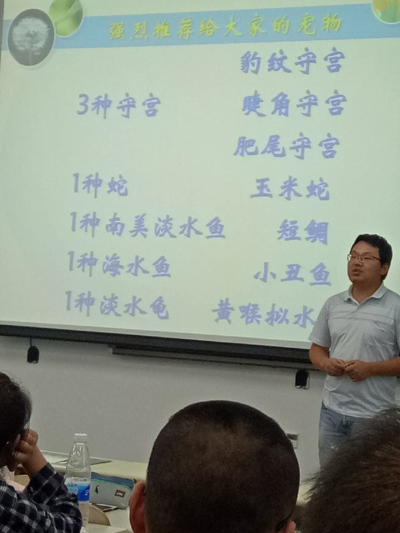 强烈推荐给大家的宠物
豹纹守宫
3种守宫 睫角守宫
肥尾守宫
1种蛇 玉米蛇
1种南美淡水鱼 短鲷
1种海水鱼 小丑鱼
1种淡水龟 黄喉拟水